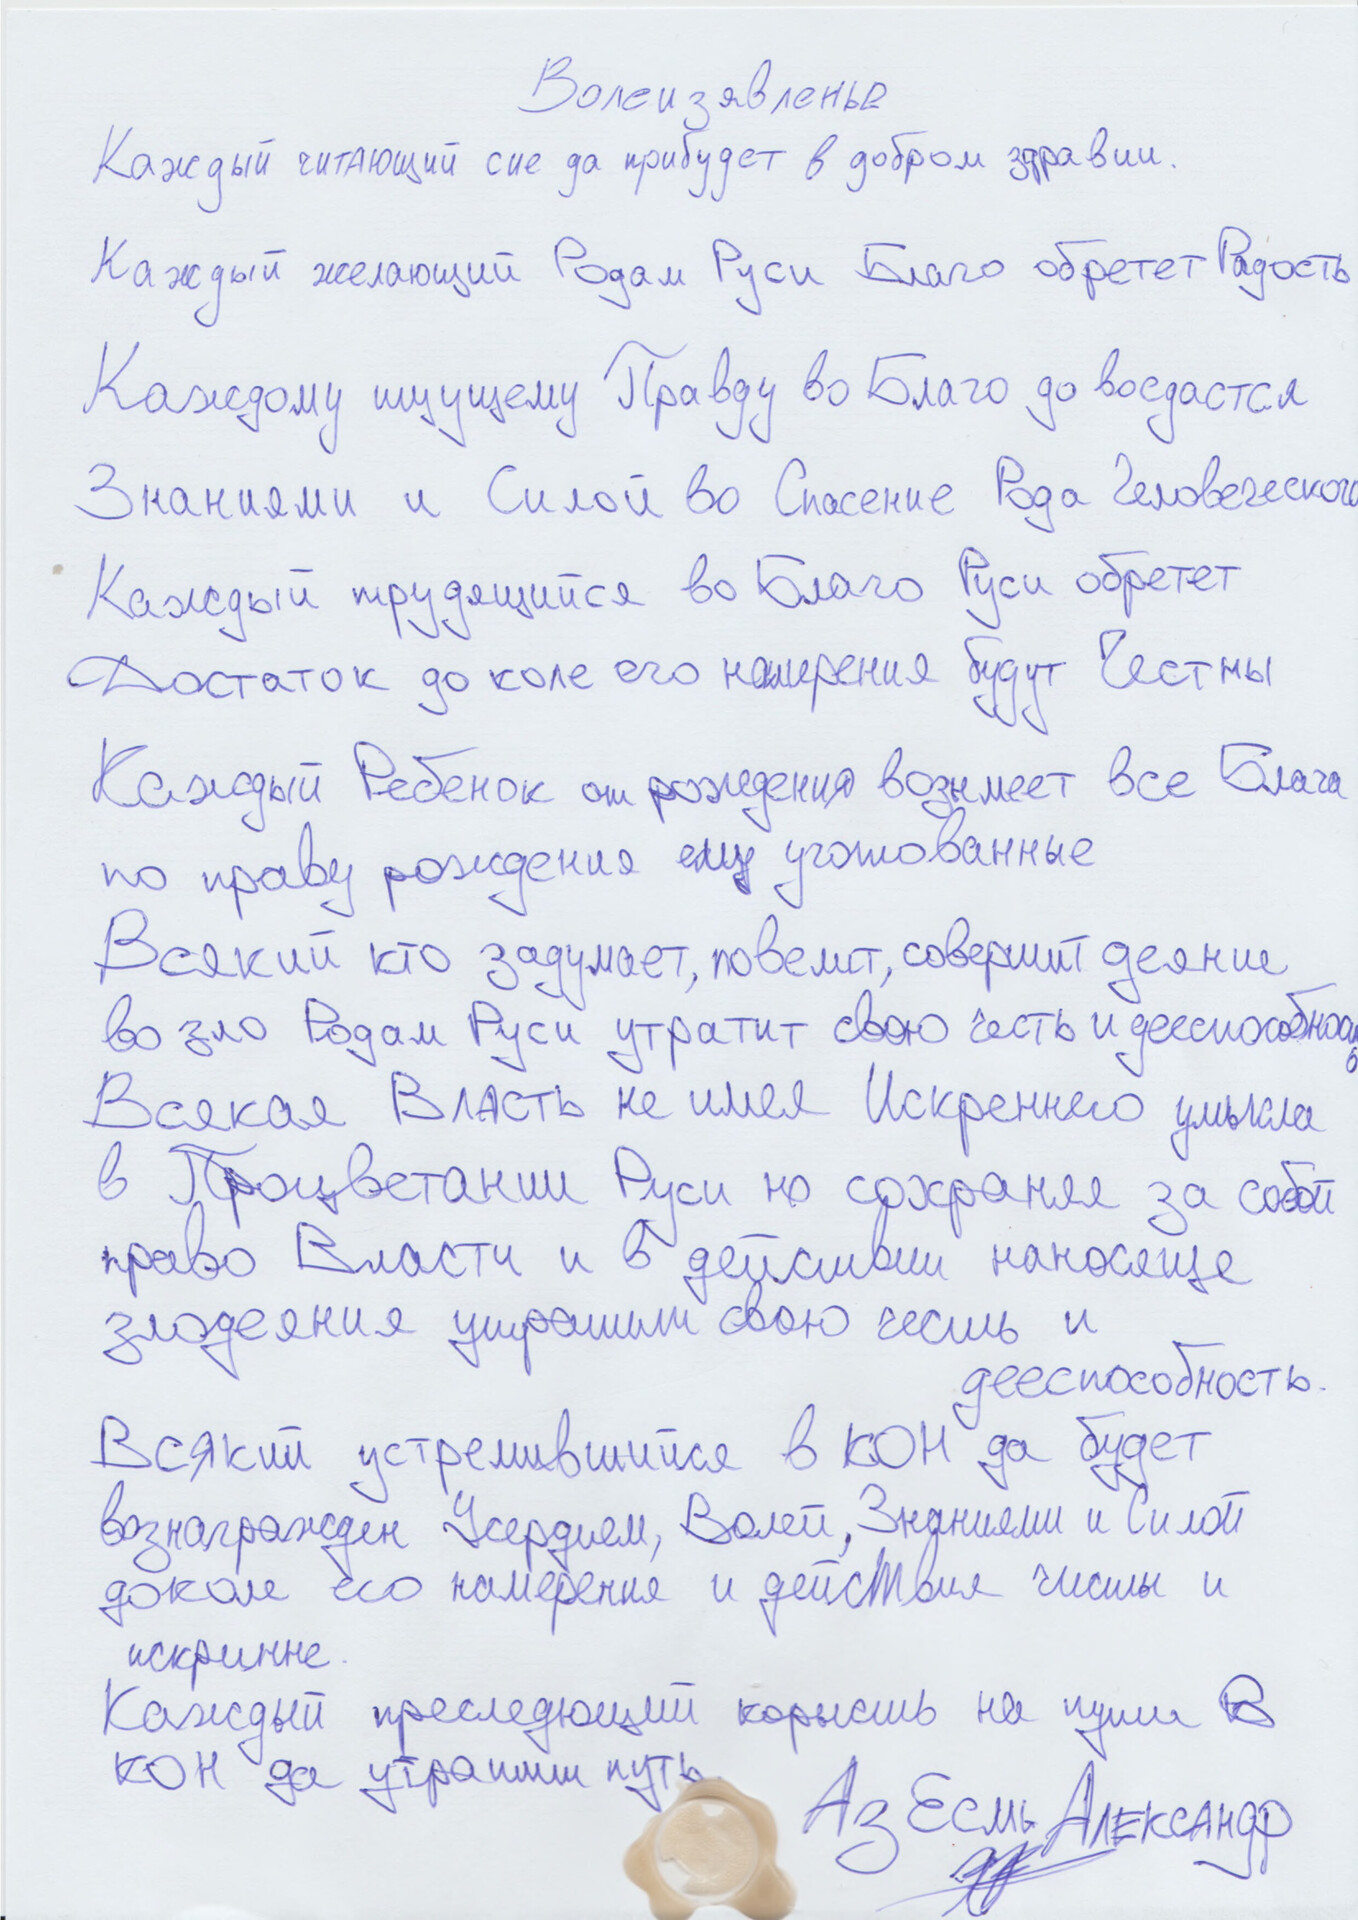 Волеизявленье
Каждый читающий сие да прибудет в добром здравии.
Каждый желающий Родам Руси Благо обретет Радость
Каждому ищущему Правду во Благо до воздастся
Знаниями и Силой во Спасение Рода Человеческого
Каждый трудящийся во Благо Руси обретет
Достаток до коле его намерения будут Честны
Каждый Ребенок от рождения возымеет все Блага
по праву рождения ему уготованные
Всякий кто задумает, повелит, совершит деяние
во зло Родам Руси утратит свою честь и дееспособность
Всякая Власть не имея Искреннего умысла
в Процветании Руси но сохраняя за собой
право Власти и в действии наносяще
злодеяния утратит свою честь и
дееспособность.
Всякий устремившийся в КОН да будет
вознагражден Усердием, Волей, Знаниями и Силой
доколе его намерения и действия чисты и
искринне.
Каждый преследующий корысть на пути в
КОН да утратит путь.
Аз Есмь Александр